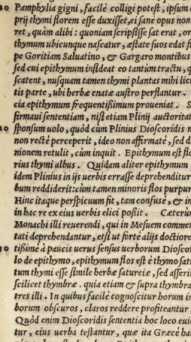 Pamphylia gigni, facilè colligi potest, ipsum
prij thymi florem esse duxisset, ei sane opus non
ret, quàm alibi: quoniam scripsisse sat erat,
thymum ubicunque nascatur, æstate suos edat
pe Goritiam Saluatino, & Gargaro montibus
sed cui epithymum insideat eo tantùm tractu,
scatent, nusquam tamen thymi plantas mihi
tis parte, ubi herbæ enatæ austro perstantur.
cia epithymum frequentissimum proueniat. S
firmaui sententiam, nisi etiam Plinij auctoritas
sponsum uolo, quòd cùm Plinius Dioscoridis
non rectè perceperit, ideo non affirmatè, sed
monem retulit, cùm inquit. Epithymum est
rius thymi albus. Quidam aliter epithymum
idem Plinius in ijs uerbis errasse deprehenditur
bum reddiderit: cùm tamen minoris flos purpur
Hinc itaque perspicuum fit, tam confusè, & in
in hac re ex eius uerbis elici possit. Cæterùm
Monachi illi reuerendi, qui in Mesuem commen
tati deprehendantur, etsi ut fortè alijs doctiores
tissimè à paucis uerus sensus uerborum Dioscori
lo de epithymo, epithymum flos est è thymo
tum thymi esse simile herbæ satureiæ, sed asseri
scilicet thymbræ. quia etiam & supra thymbra
tres illi. In quibus facilè cognoscitur horum
borum obscuros, claros reddere profiterentur
Quòd enim Dioscoridis sententia hoc loco
tur, eius uerba testantur, quæ ita Græcè